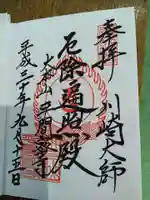 奉拝
川崎大師
厄除遍照殿
大本山平間寺
平成三十年九月二十五日